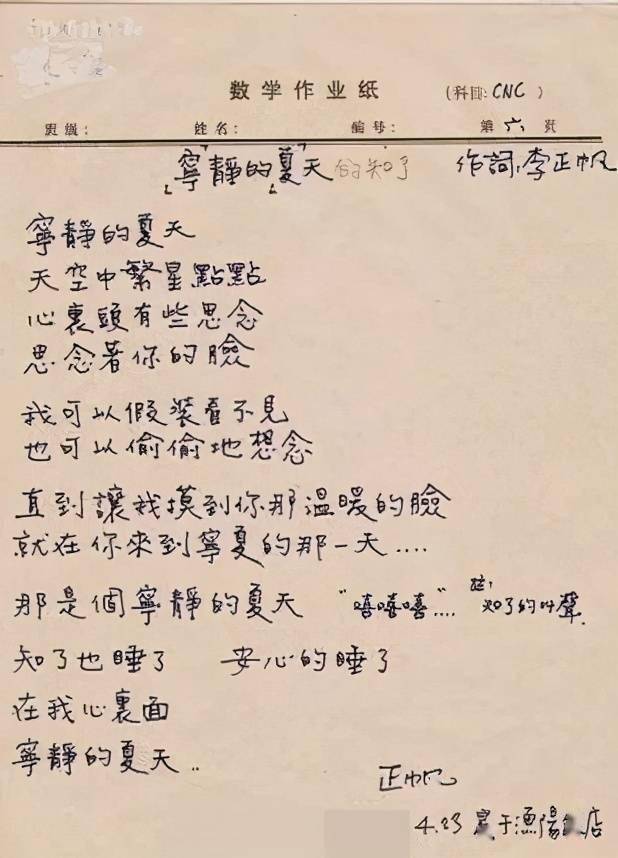 数学作业纸 (科目: CNC )
班级: 姓名: 编号: 第 六 页
「寧靜的夏天」的知了 作詞: 李正帆
寧靜的夏天
天空中繁星點點
心裏頭有些思念
思念著你的臉
我可以假裝看不見
也可以偷偷地想念
直到讓我摸到你那溫暖的臉
就在你來到寧夏的那一天....
那是個寧靜的夏天 "嘻嘻嘻".... 註: 知了的叫聲
知了也睡了 安心的睡了
在我心裏面
寧靜的夏天..
正帆
4.23 于漁陽飯店